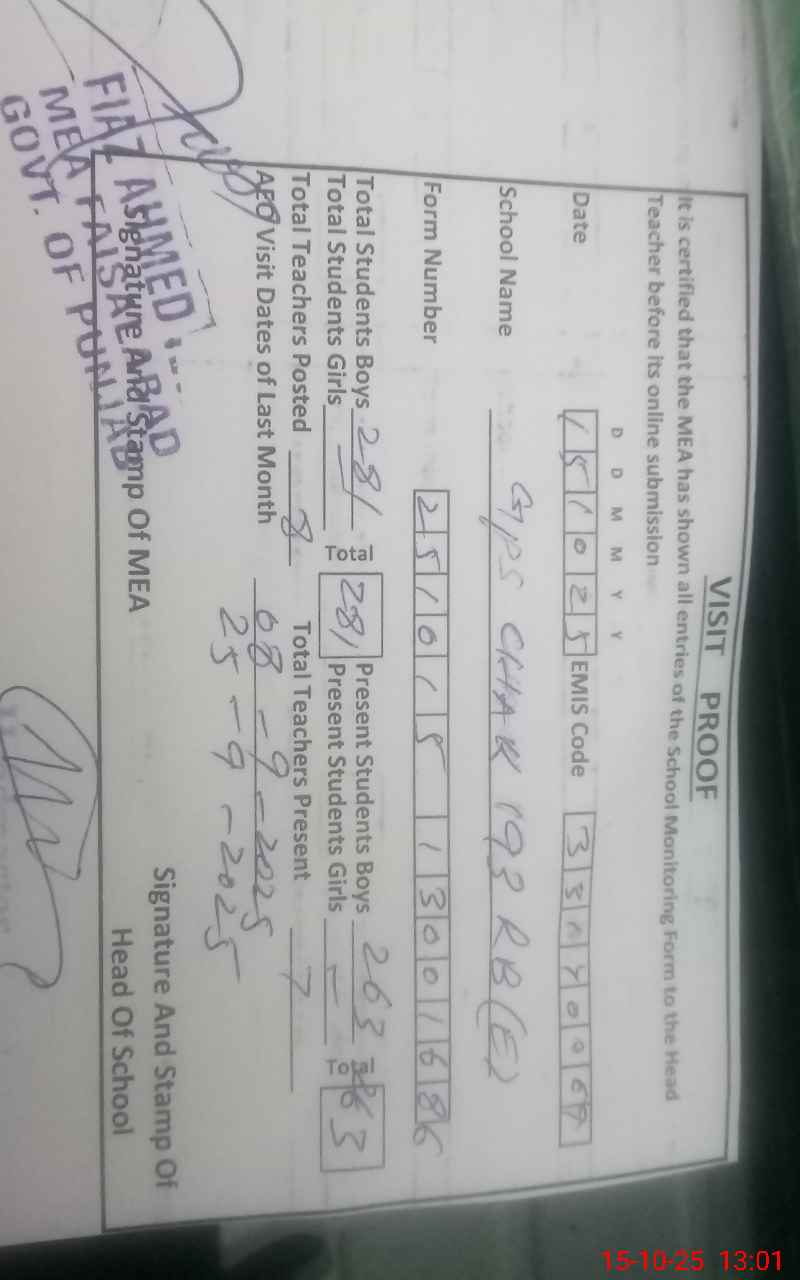 VISIT PROOF
It is certified that the MEA has shown all entries of the School Monitoring Form to the Head
Teacher before its online submission
D D M M Y Y
Date 151025 EMIS Code
School Name GPS CHAK 193 RB (E)
Form Number 2510151300168
Total Students Boys 281 Total 281 Present Students Boys 263 Total 263
Total Students Girls — Present Students Girls —
Total Teachers Posted 8 Total Teachers Present 7
AEO Visit Dates of Last Month 08-9-2025
25-9-2025
Signature And Stamp Of MEA
Signature And Stamp Of
Head Of School
FIAZ AHMED
MEA FAISALABAD
GOVT. OF PUNJAB
15-10-25 13:01